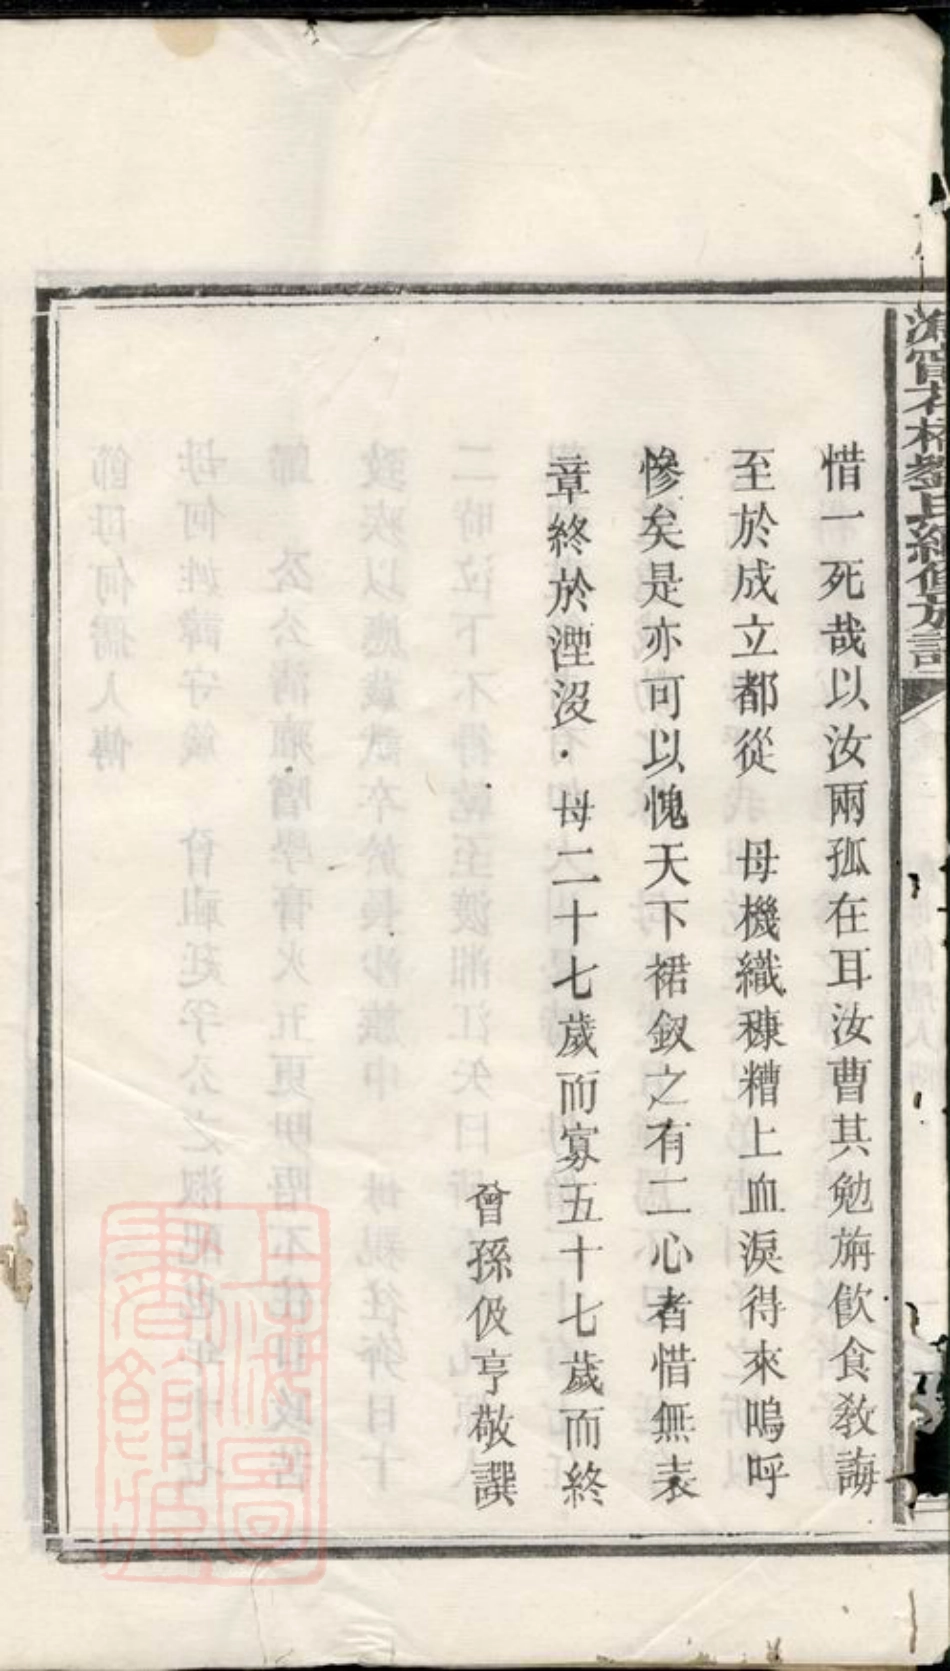 惜一死哉以汝兩孤在耳汝曹其勉旃飲食教誨
至於成立都從　母機織穅糟上血淚得來嗚呼
慘矣是亦可以愧天下裙釵之有二心者惜無表
章終於湮沒．母二十七歲而寡五十七歲而終
曾孫伋亨敬譔
上海圖書館藏